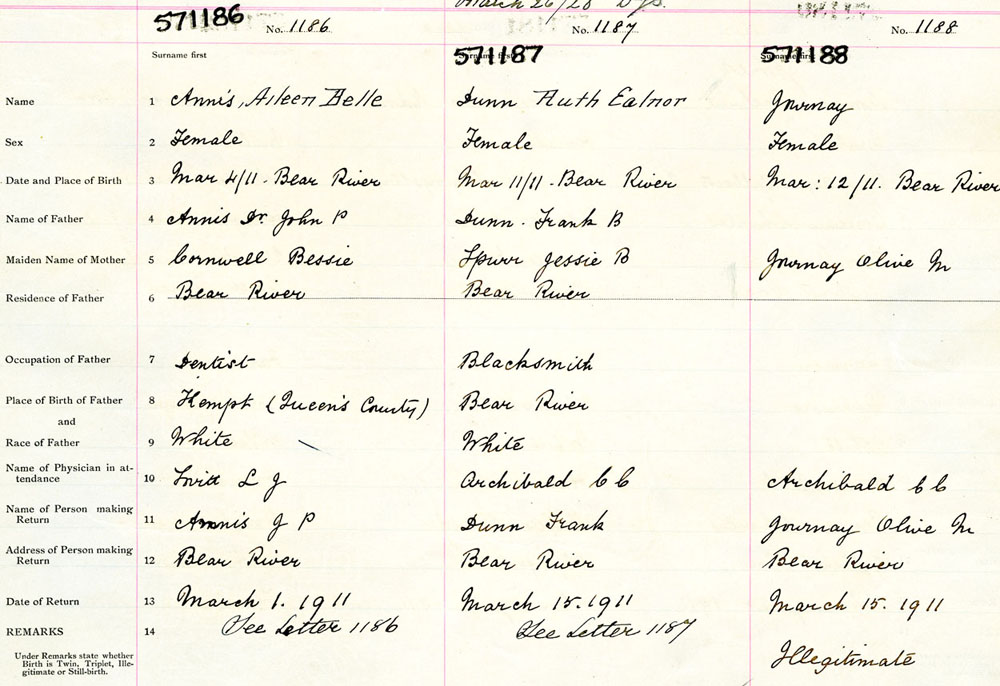 March 26/28
571186 No. 1186 No. 1187 No. 1188
Surname first 571187 571188
Name 1 Annis, Aileen Belle Dunn Ruth Ealnor Journay
Sex 2 Female Female Female
Date and Place of Birth 3 Mar 4/11 - Bear River Mar 11/11 - Bear River Mar: 12/11. Bear River
Name of Father 4 Annis Dr. John P Dunn - Frank B
Maiden Name of Mother 5 Cornwell Bessie Spurr Jessie B Journay Olive M
Residence of Father 6 Bear River Bear River
Occupation of Father 7 Dentist Blacksmith
Place of Birth of Father 8 Kempt (Queen's County) Bear River
and
Race of Father 9 White White
Name of Physician in at-
tendance 10 L J Archibald C C Archibald C C
Name of Person making
Return 11 Annis J P Dunn Frank Journay Olive M
Address of Person making
Return 12 Bear River Bear River Bear River
Date of Return 13 March 1. 1911 March 15. 1911 March 15. 1911
REMARKS 14 See Letter 1186 See Letter 1187
Under Remarks state whether
Birth is Twin, Triplet, Ille-
gitimate or Still-birth. Illegitimate